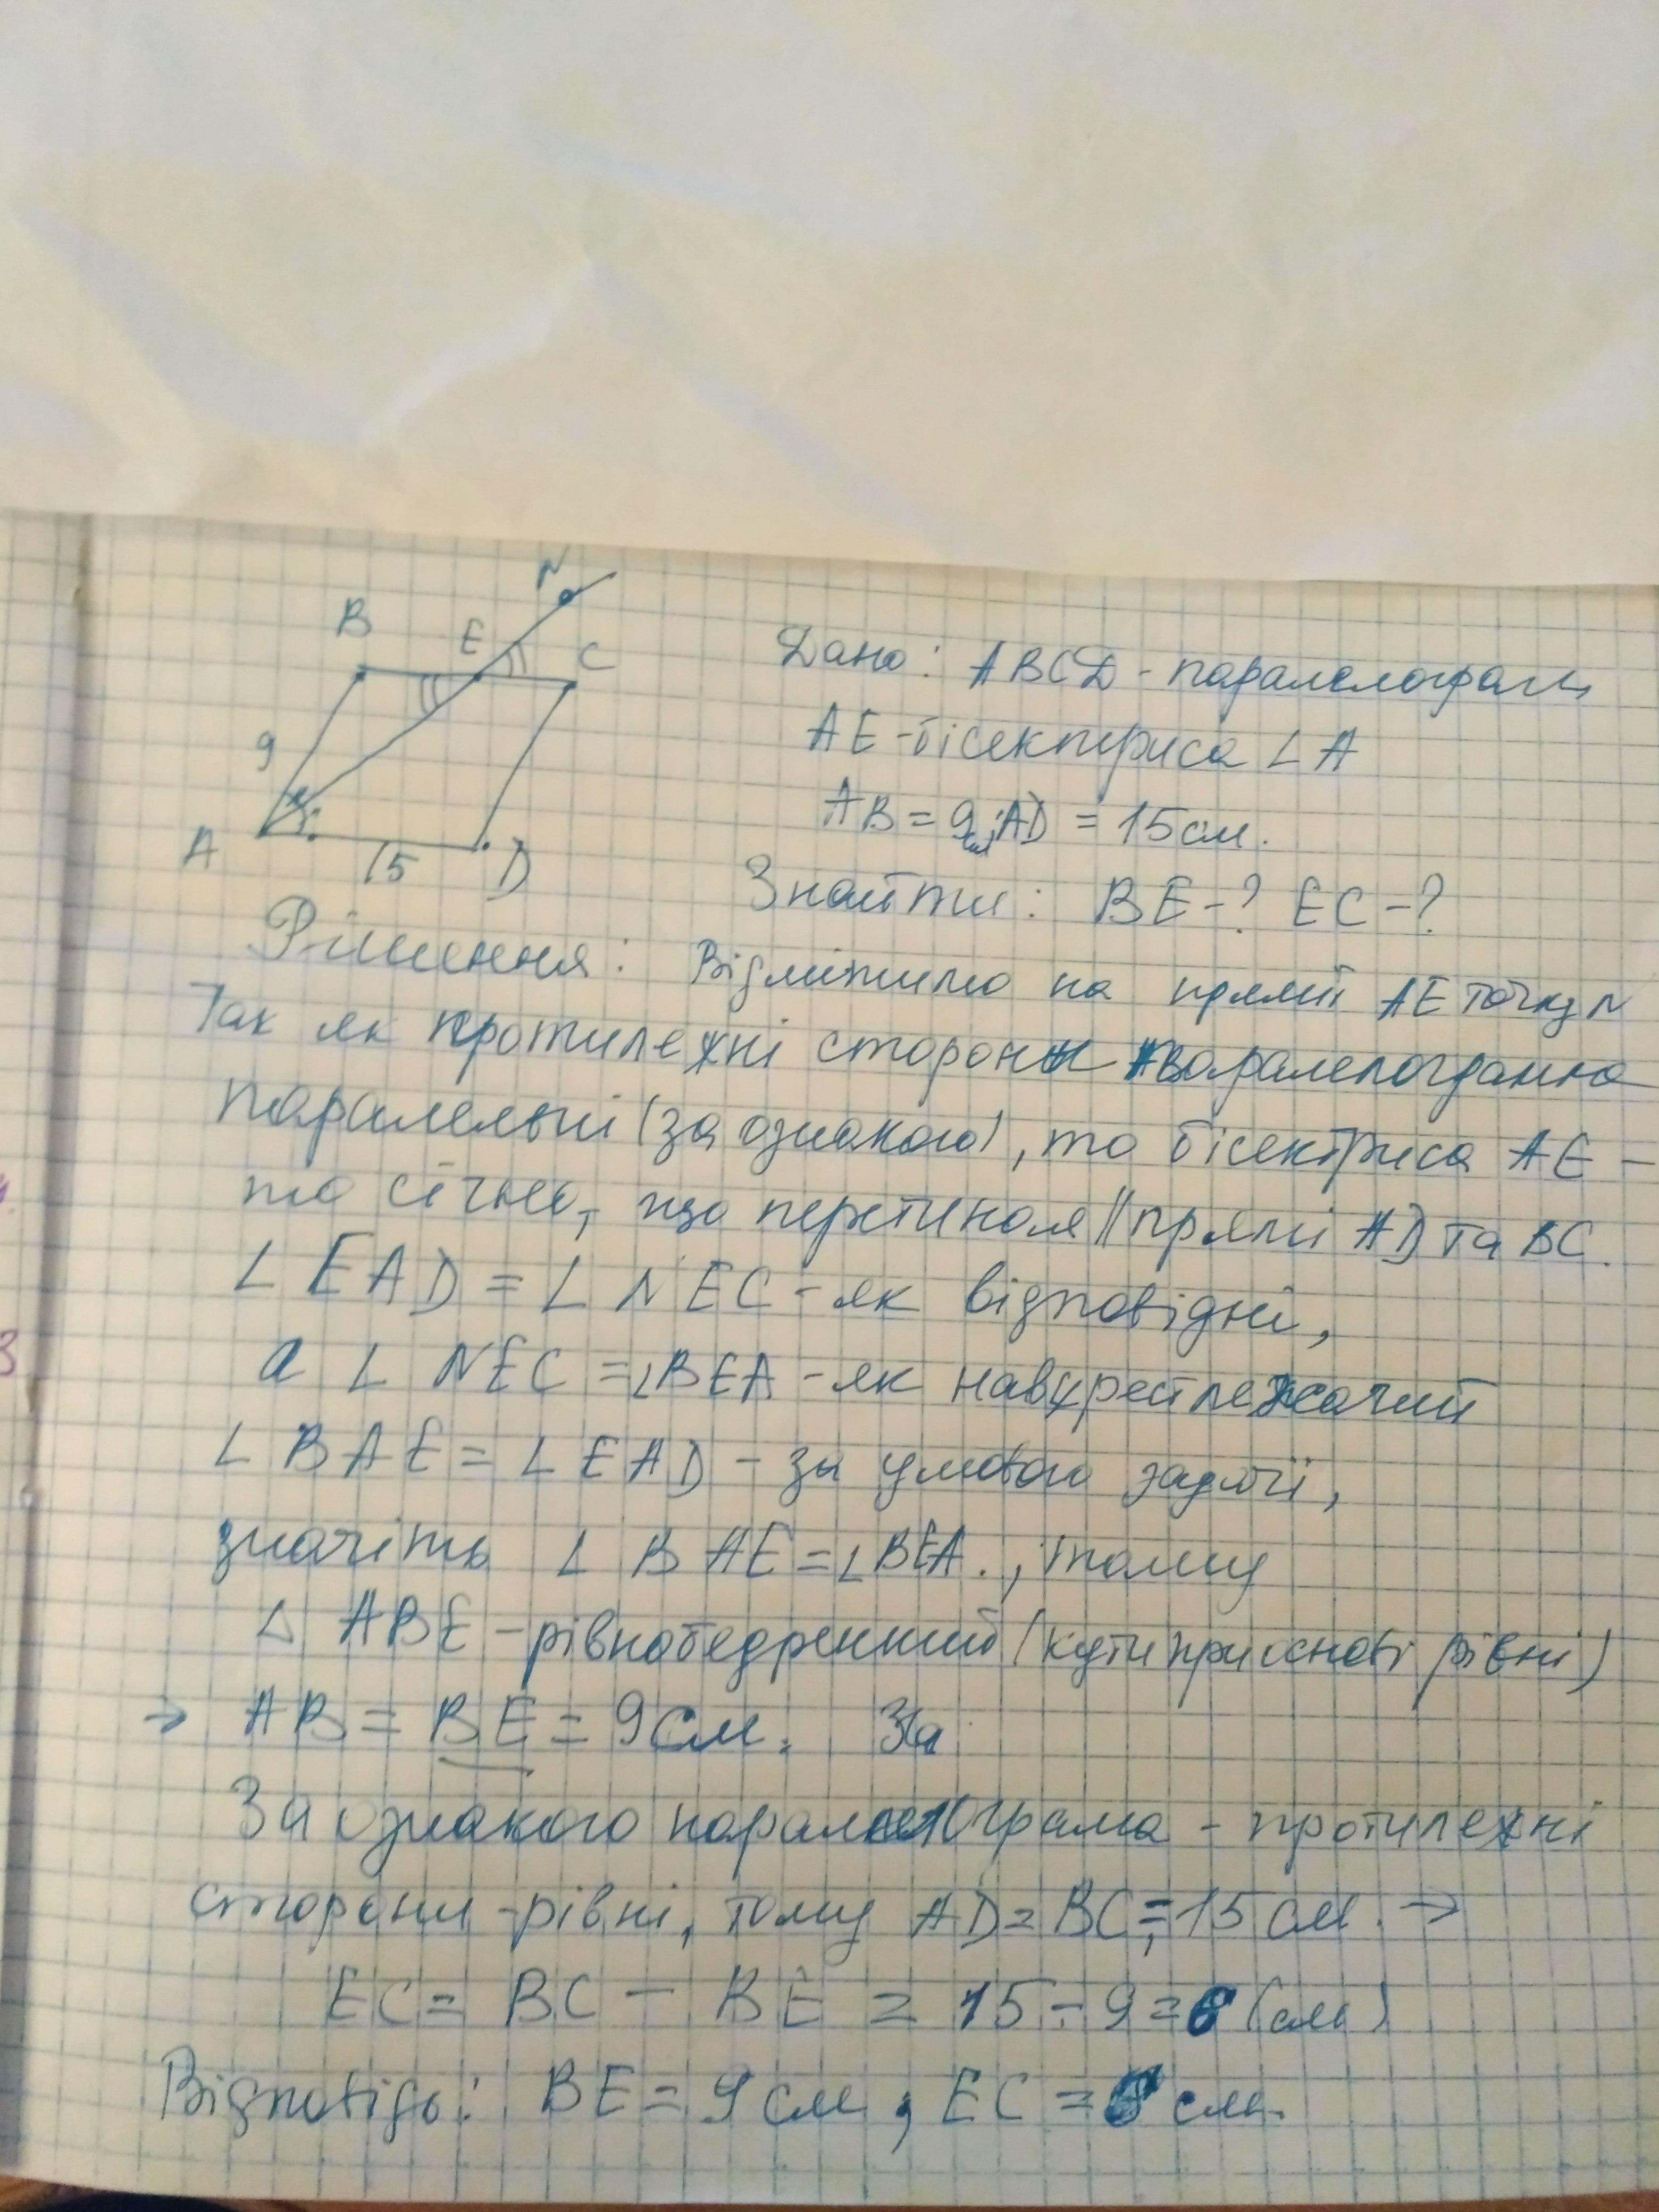 N
B
E
C
9
A
15
D
Дано: ABCD - паралелограм
AE - бісектриса ∠A
AB = 9см; AD = 15см.
Знайти: BE - ? EC - ?
Рішення: Відмітимо на прямій AE точку N
Так як протилежні сторони паралелограма
паралельні (за ознакою), то бісектриса AE -
то січна, що перетинає || прямі AD та BC.
∠ EAD = ∠ NEC - як відповідні,
а ∠ NEC = ∠BEA - як навхрестлежачий
∠ BAE = ∠ EAD - за умовою задачі,
значіть ∠ BAE = ∠BEA., тому
△ ABE - рівнобедренний (кути при основі рівні)
→ AB = BE = 9см. За
За ознакою паралелограма - протилежні
сторони - рівні, тому AD = BC = 15 см. →
EC = BC - BE = 15 - 9 = 6 (см)
Відповідь: BE = 9 см, EC = 6 см.